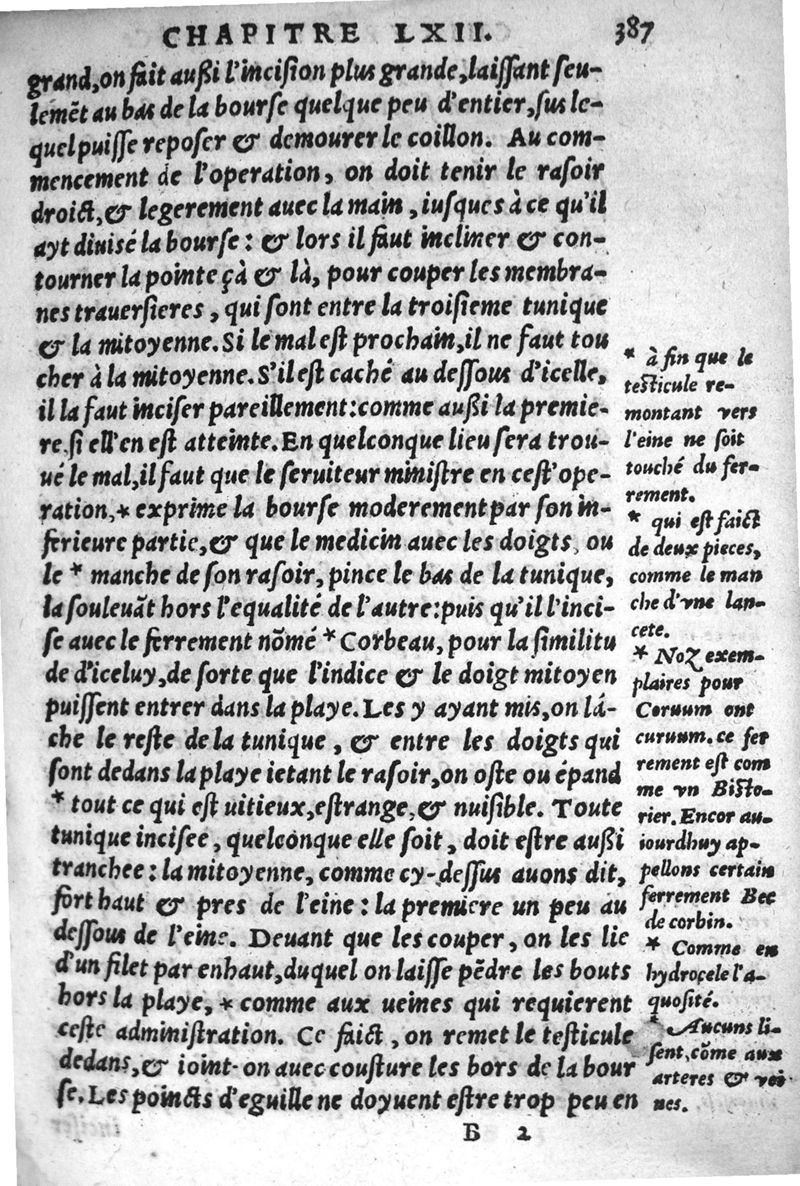 CHAPITRE LXII. 387
grand, on fait außi l'inciſion plus grande, laiſſant ſeu-
lemẽt au bas de la bourſe quelque peu d'entier, ſus le-
quel puiſſe repoſer & demourer le coillon. Au com-
mencement de l'operation, on doit tenir le raſoir
droict, & legerement auec la main, iuſques à ce qu'il
ayt diuisé la bourſe : & lors il faut incliner & con-
tourner la pointe çà & là, pour couper les membra-
nes trauerſieres, qui ſont entre la troiſieme tunique
& la mitoyenne. Si le mal eſt prochain, il ne faut tou
cher à la mitoyenne. S'il eſt caché au deſſous d'icelle,
il la faut inciſer pareillement: comme außi la premie-
re, ſi ell'en eſt atteinte. En quelconque lieu ſera trou-
ué le mal, il faut que le ſeruiteur miniſtre en ceſt'ope-
ration, * exprime la bourſe moderement par ſon in-
ferieure partie, & que le medicin auec les doigts, ou
le * manche de ſon raſoir, pince le bas de la tunique,
la ſouleuãt hors l'equalité de l'autre: puis qu'il l'inci-
ſe auec le ferrement nõmé * Corbeau, pour la ſimilitu
de d'iceluy, de ſorte que l'indice & le doigt mitoyen
puiſſent entrer dans la playe. Les y ayant mis, on lá-
che le reſte de la tunique, & entre les doigts qui
ſont dedans la playe ietant le raſoir, on oſte ou épand
* tout ce qui eſt uitieux, eſtrange, & nuiſible. Toute
tunique inciſee, quelconque elle ſoit, doit eſtre außi
tranchee : la mitoyenne, comme cy-deſſus auons dit,
fort haut & pres de l'eine : la premiere un peu au
deſſous de l'eine. Deuant que les couper, on les lie
d'un filet par enhaut, duquel on laiſſe pẽdre les bouts
hors la playe, * comme aux ueines qui requierent
ceſte adminiſtration. Ce faict, on remet le teſticule
dedans, & ioint-on auec couſture les bors de la bour
ſe. Les poincts d'eguille ne doyuent eſtre trop peu en
B 2
* à fin que le
teſticule re-
montant vers
l'eine ne ſoit
touché du fer-
rement.
* qui eſt faict
de deux pieces,
comme le man
che d'vne lan-
cete.
* Noz exem-
plaires pour
Coruum ont
curuum. ce fer
rement eſt com
me vn Biſto-
rier. Encor au-
iourdhuy ap-
pellons certain
ferrement Bec
de corbin.
* Comme en
hydroçele l'a-
quoſité.
* Aucuns li-
ſent, cõme aux
arteres & vei
nes.